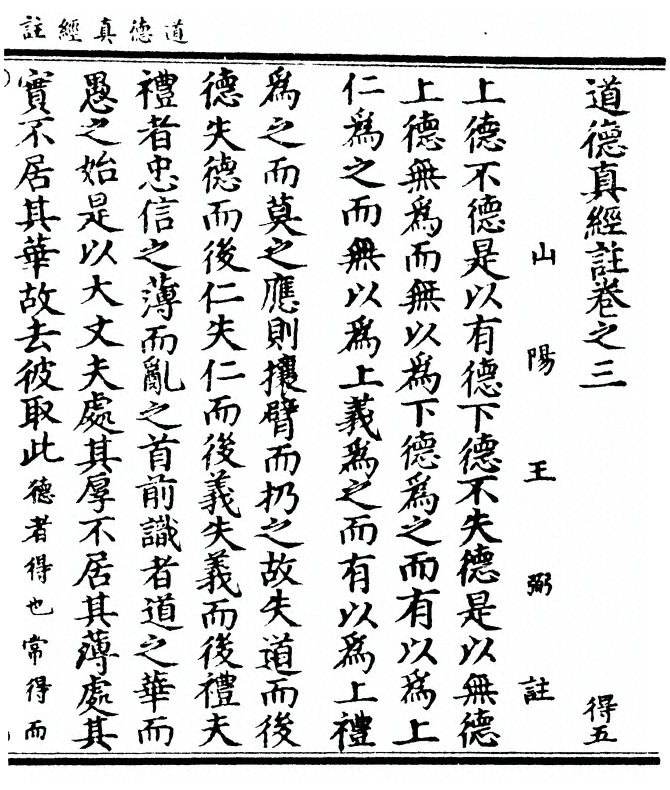 道德真經註
道德真經註卷之三
得五
山陽王弼註
上德不德是以有德下德不失德是以無德
上德無為而無以為下德為之而有以為上
仁為之而無以為上義為之而有以為上禮
為之而莫之應則攘臂而扔之故失道而後
德失德而後仁失仁而後義失義而後禮夫
禮者忠信之薄而亂之首前識者道之華而
愚之始是以大丈夫處其厚不居其薄處其
實不居其華故去彼取此德者得也常得而